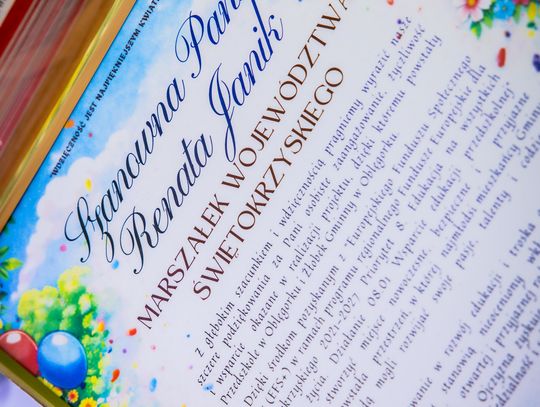 WDZIĘCZNOŚĆ JEST NAJPIĘKNIEJSZYM KWIAT
Szanowna Pani
Renata Janik
MARSZAŁEK WOJEWÓDZTWA
ŚWIĘTOKRZYSKIEGO
Z głębokim szacunkiem i wdzięcznością pragniemy wyrazić nasze
szczere podziękowania za Pani osobiste zaangażowanie, życzliwość
i wsparcie okazane w realizacji projektu, dzięki któremu powstały
Przedszkole w Oblęgorku i Żłobek Gminny w Oblęgorku.
Dzięki środkom pozyskanym z Europejskiego Funduszu Społecznego
(EFS+) w ramach programu regionalnego Fundusze Europejskie dla
2021-2027 Priorytet 8. Edukacja na wszystkich
życia, Działanie 08.01 Wsparcie edukacji przedszkolnej
stworzyć miejsce nowoczesne, bezpieczne i przyjazne
przestrzeń, w której najmłodsi mieszkańcy Gminy
mogli rozwijać swoje pasje, talenty i
w rozwój edukacji i troska o
stanowią nieoceniony
otwartej, przyjaznej